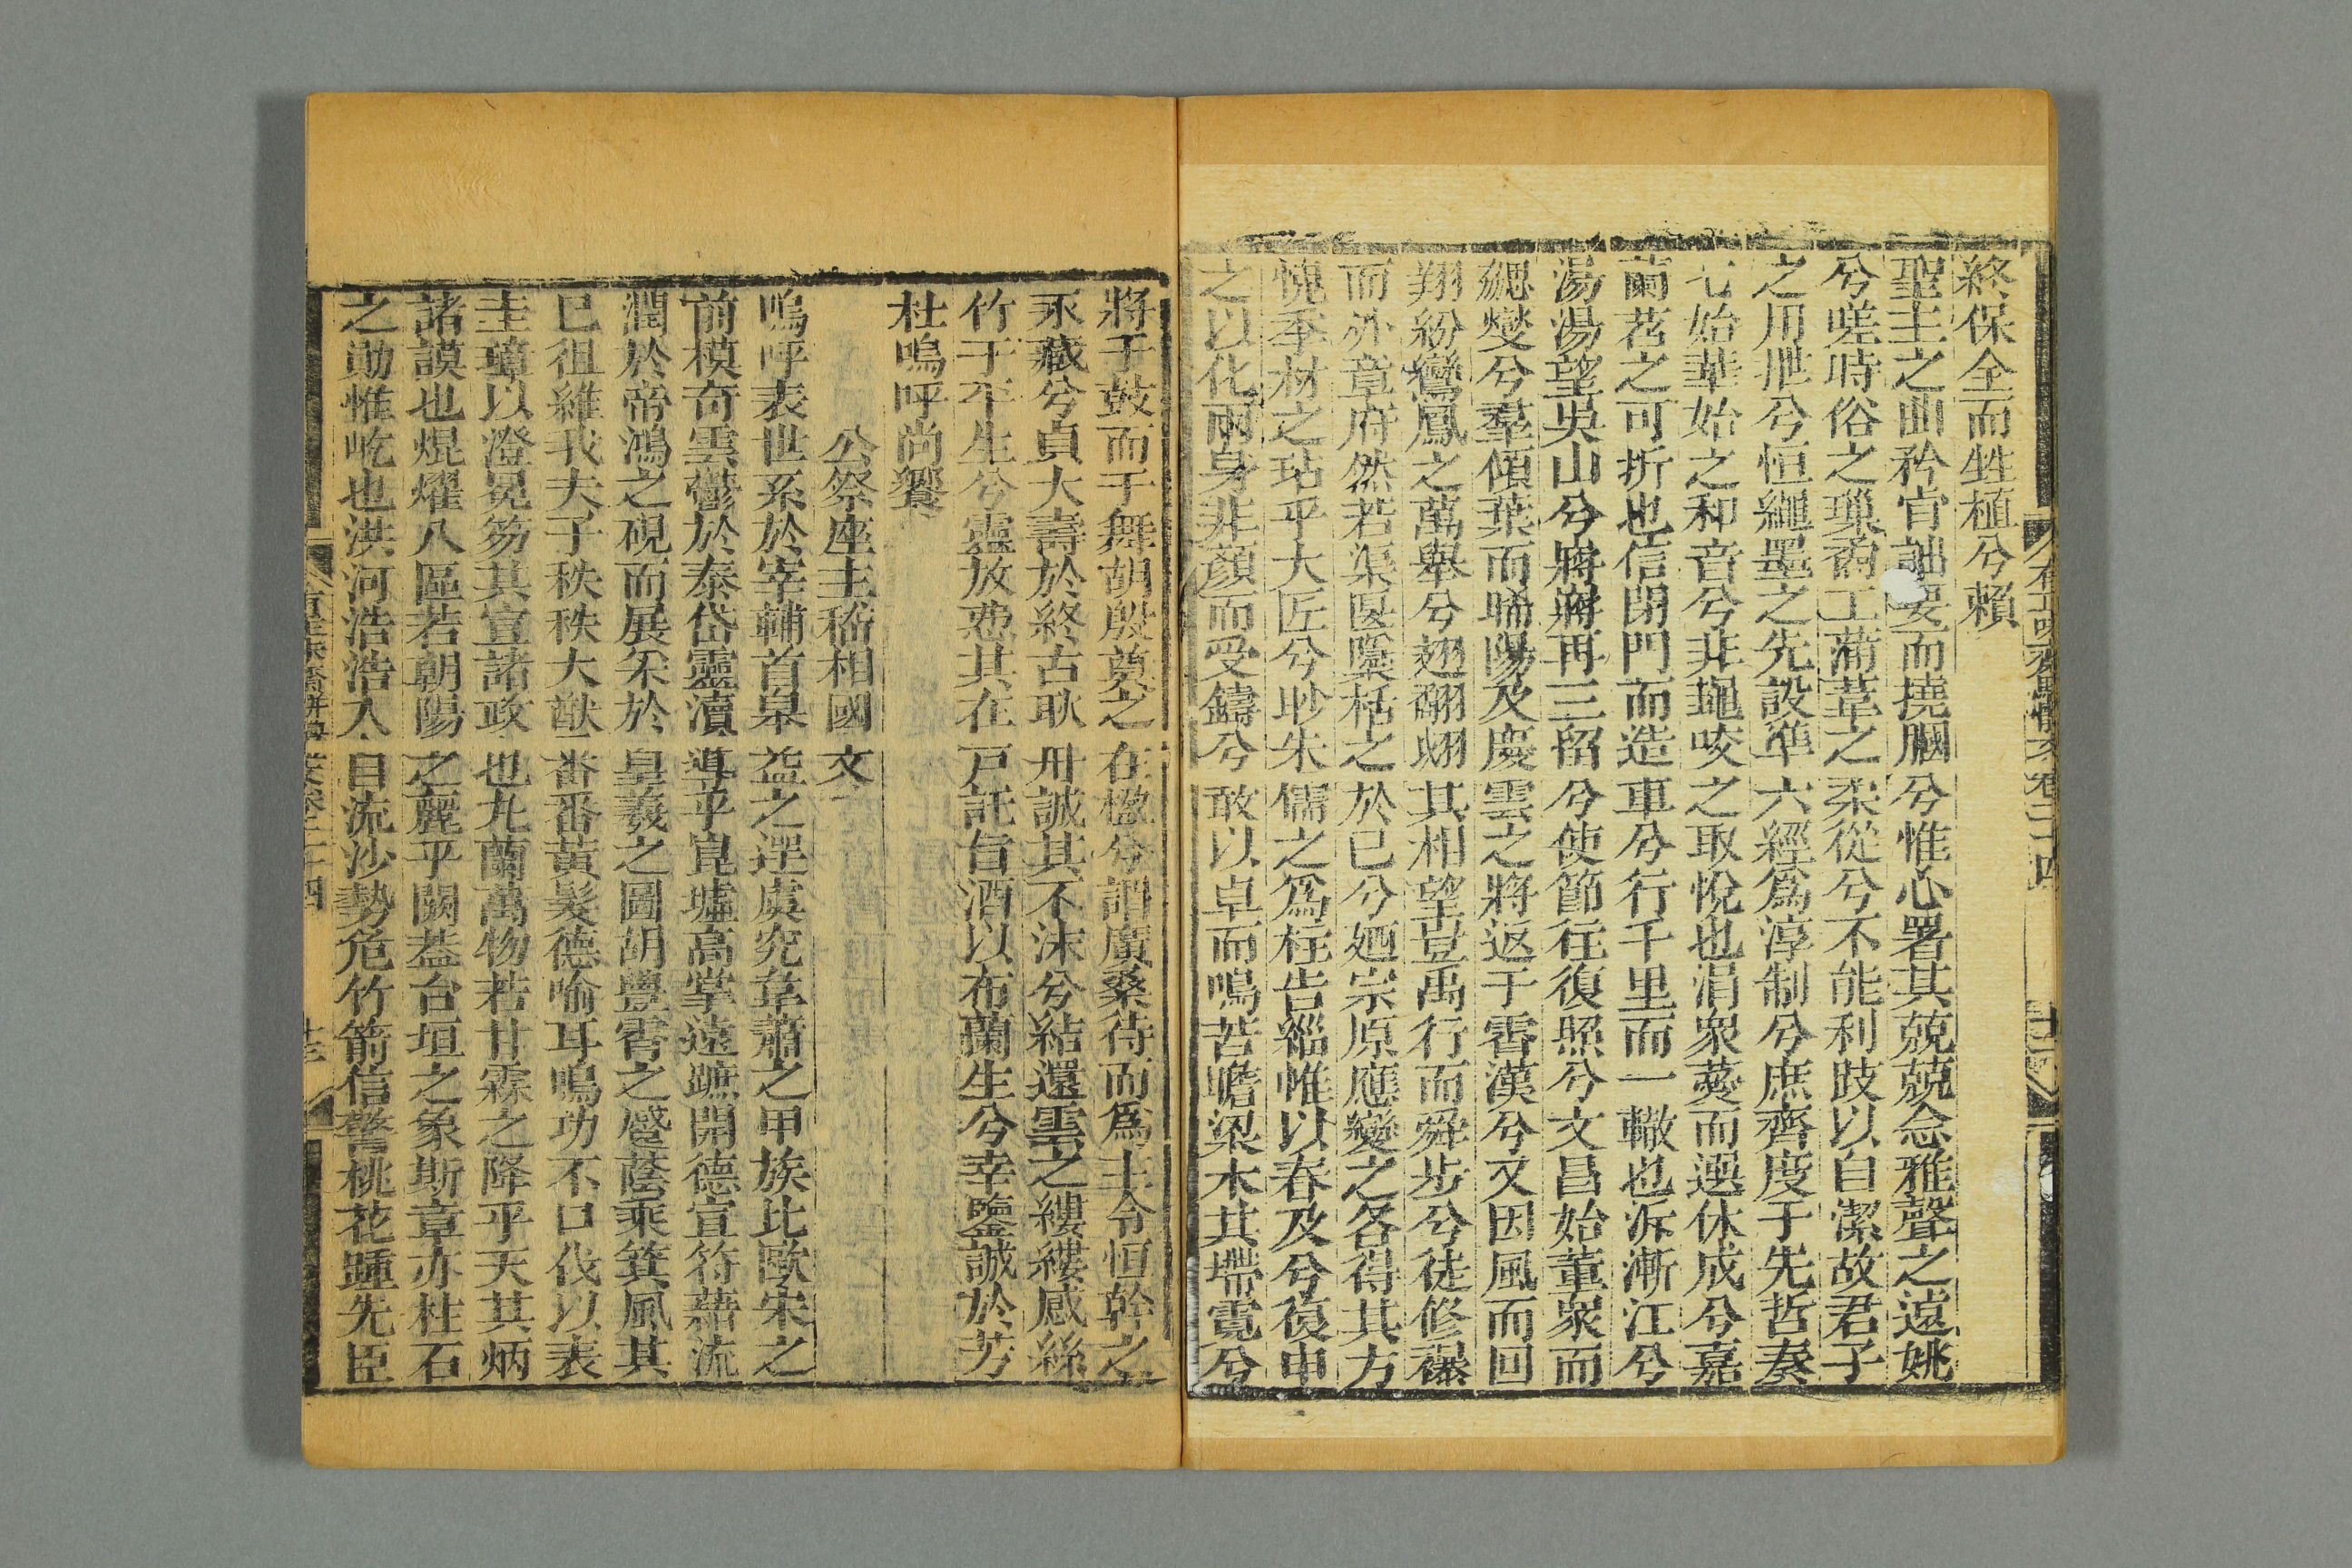 終保全而甡植兮賴
聖主之曲矜官詘妥而撓膕兮惟心署其兢兢念雅聲之遠姚
兮嗟時俗之璅裔工蒲葦之柔從兮不能利跂以自潔故君子
之用泄兮恒繩墨之先設準六經為淳制兮庶齊度于先哲奏
七始華始之和音兮非鼃咬之取悅也涓衆薆而選休成兮嘉
蘭茗之可折也信閉門而造車兮行千里而一轍也泝漸江兮
湯湯望吳山兮將將再三留兮使節往復照兮文昌始董衆而
勰燮兮羣傾葉而晞陽及慶雲之將返于霄漢兮又因風而回
翔紛鸞鳳之萬舉兮翅翮翃其相望豈禹行而舜步兮徒修襮
而外章府然若渠匽檃栝之於已兮廼宗原應變之各得其方
愧季材之玷乎大匠兮眇朱儒之為柱告緇惟以春及兮復申
之以化兩身非顏而受鑄兮敢以卓而鳴苦瞻梁木其壞霓兮
將于鼓而于舞胡殷奠之在楹兮謂廣桑待而爲主令恒幹之
永藏兮貞大壽於終古耿丹誠其不沫兮結還雲之縷縷感絲
竹于平生兮靈放悲其在戶託旨酒以布蘭生兮幸鑒誠於芳
杜嗚呼尚饗
公祭座主嵇相國文
嗚呼表世系於宰輔首皋益之逕虞究韋蕭之甲族比歐宋之
前模奇雲鬱於泰岱靈瀆導乎崑墟高掌遠蹠開德宣符藉流
潤於帝鴻之硯而展采於皇羲之圖胡豐霄之蹙蔭乘箕風其
已徂維我夫子秩秩大猷番番黃髮德喻耳鳴功不口伐以表
圭璋以澄冕笏其宣諸政也九蘭萬物若甘霖之降乎天其炳
諸謨也焜燿八區若朝陽之麗乎闕蓋台垣之象斯章亦柱石
之勛惟屹也洪河浩浩入自流沙勢危竹箭信警桃花踵先臣